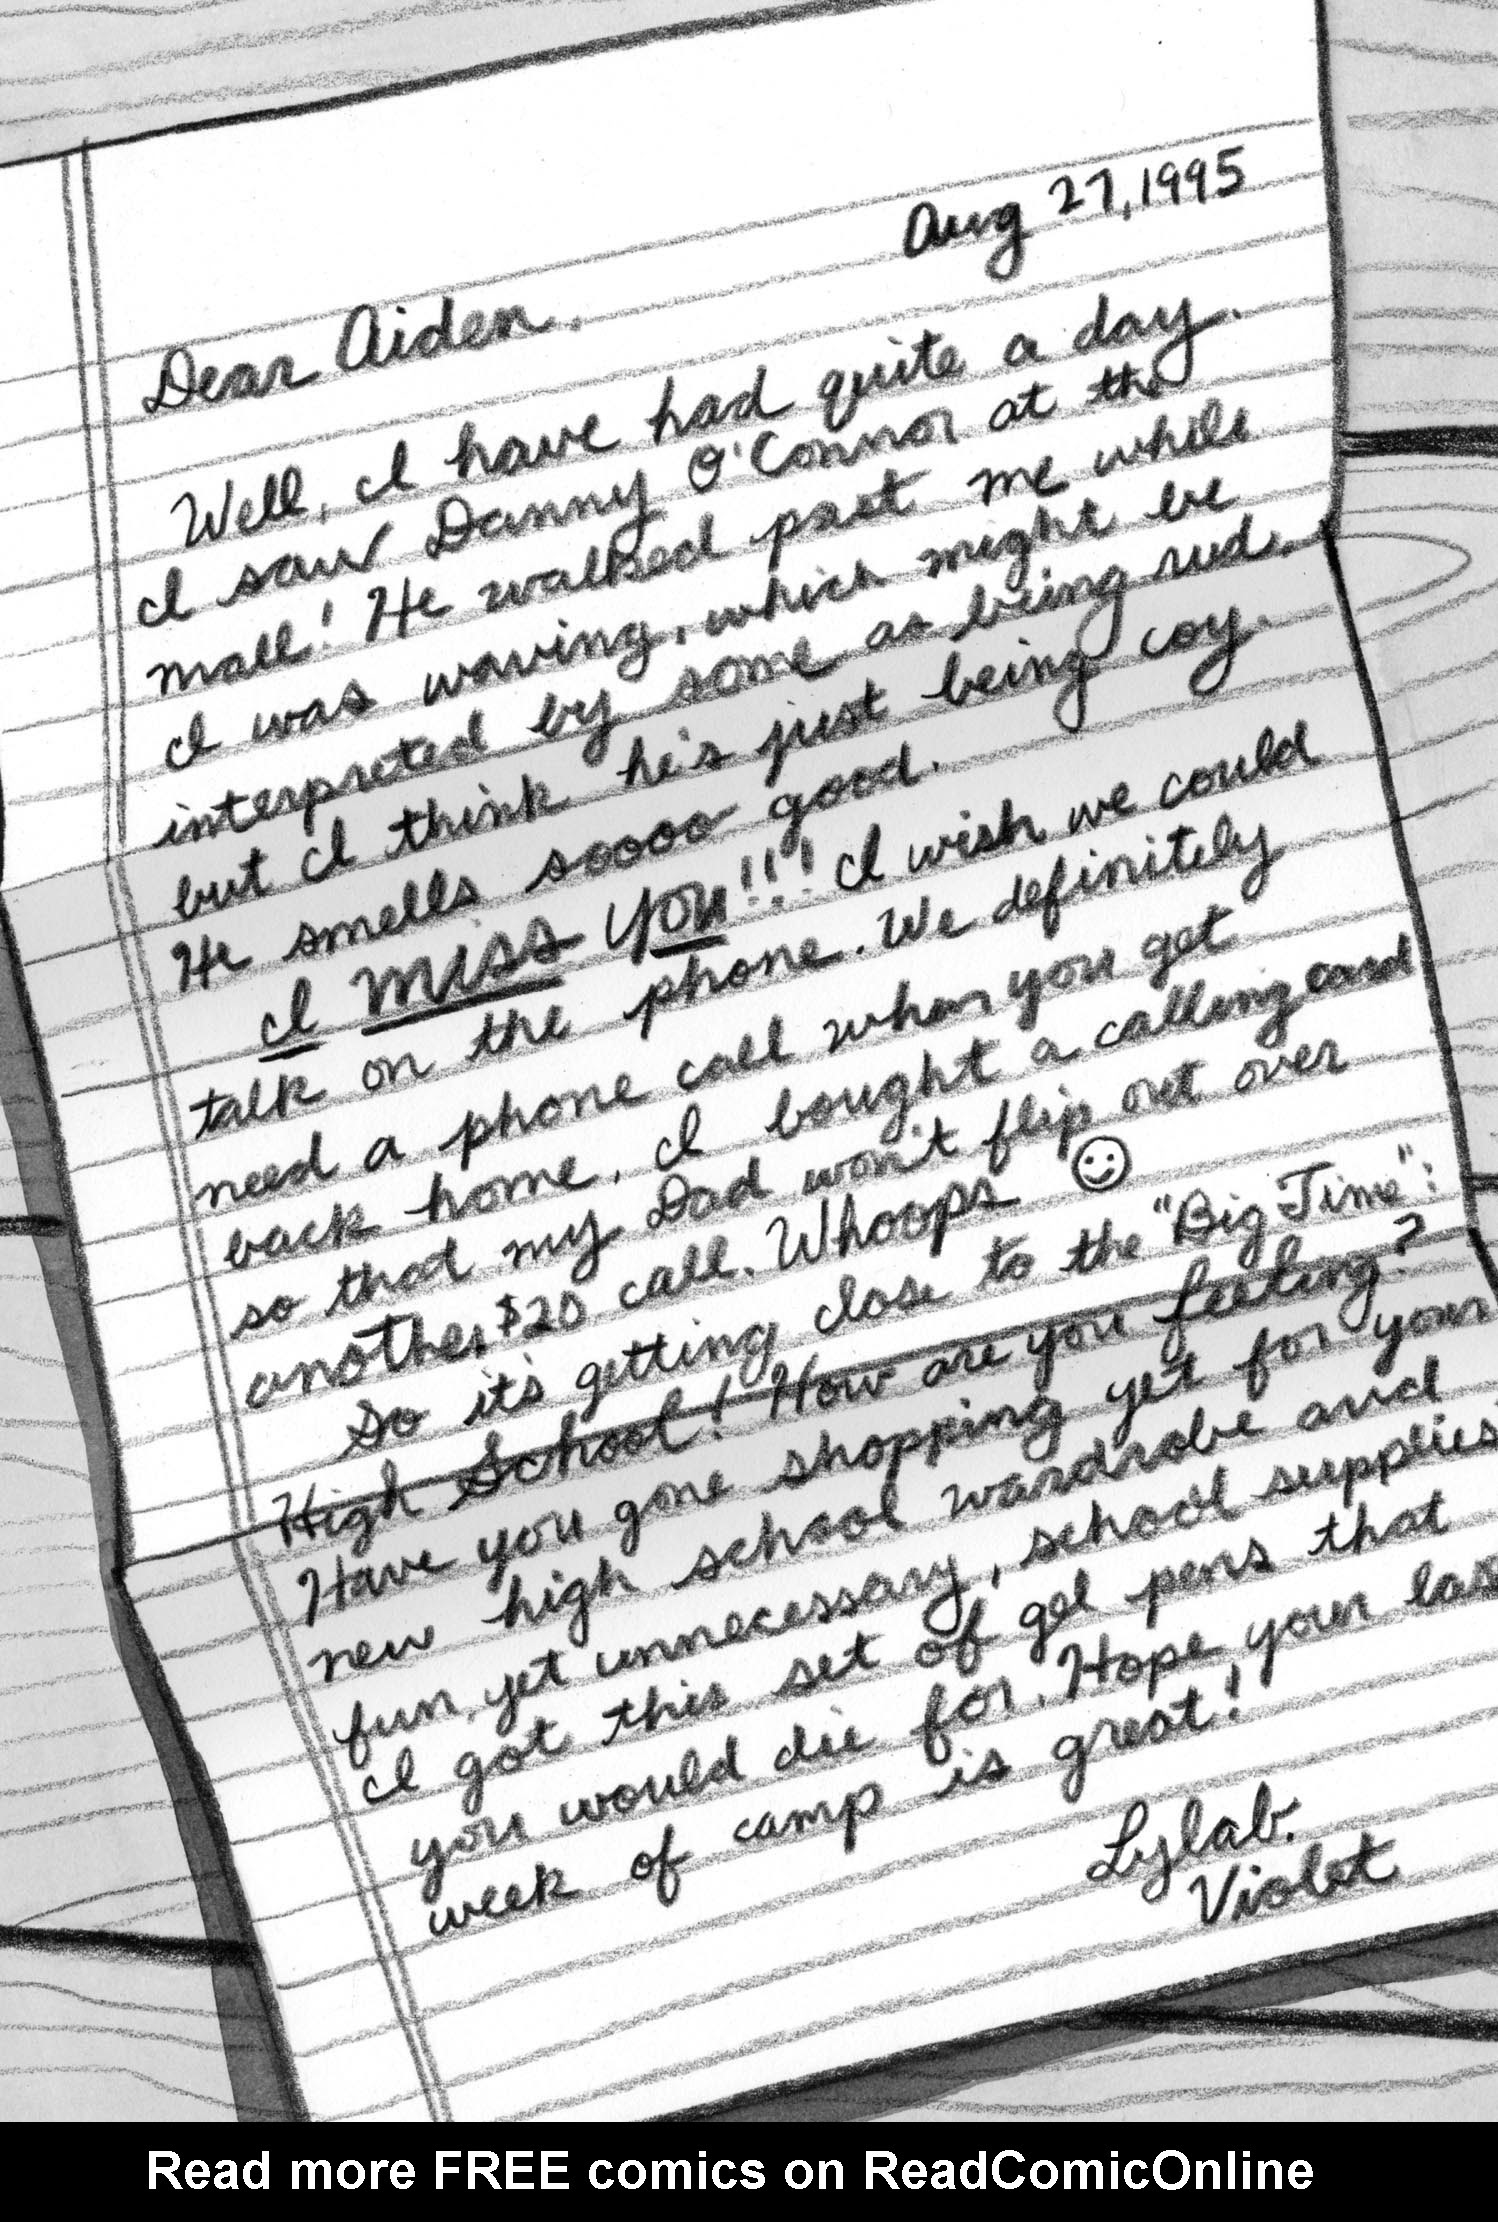 Aug 27, 1995
Dear Aiden,
Well, I have had quite a day.
I saw Danny O'Connor at the
mall! He walked past me while
I was waving, which might be
interpreted by some as being rude
but I think he's just being coy.
He smells soooo good.
I MISS YOU!!! I wish we could
talk on the phone. We definitely
need a phone call when you get
back home. I bought a calling card
so that my Dad won't flip out over
another $20 call. Whoops ☺
So it's getting close to the "Big Time":
High School! How are you feeling?
Have you gone shopping yet for your
new high school wardrobe and
fun, yet unnecessary, school supplies
I got this set of gel pens that
you would die for. Hope your las
week of camp is great!
Lylab.
Violet
Read more FREE comics on ReadComicOnline